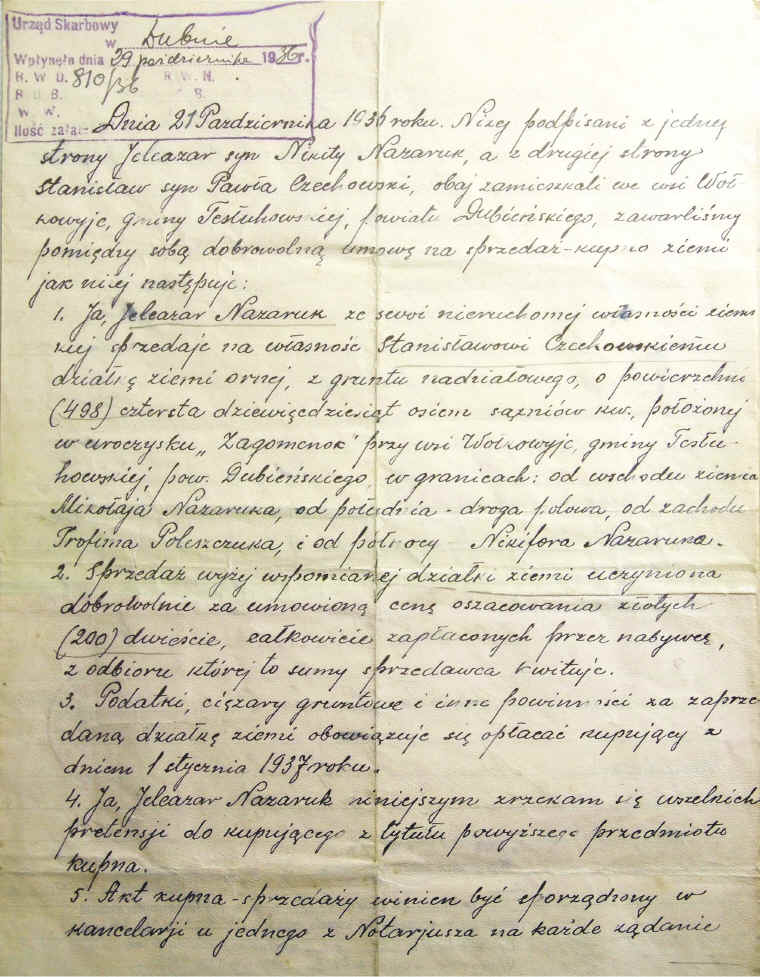 Urząd Skarbowy
w Dubnie
Wpłynęło dnia 29 października 1936 r.
R. W U. 810/36 R. W. N.
R. U B. B.
W. W.
Ilość załąc
Dnia 21 Pazdziernika 1936 roku. Niżej podpisani z jednej
strony Jeleazar syn Nikity Nazaruk, a z drugiej strony
Stanisław syn Pawła Czechowski, obaj zamieszkali we wsi Woł-
kowyje, gminy Tesłuhowskiej, powiatu Dubieńskiego, zawarliśmy
pomiędzy sobą dobrowolną umowę na sprzedaż-kupno ziemi
jak niżej następuje:
1. Ja, Jeleazar Nazaruk ze swoi nieruchomej własności ziems
kiej sprzedaje na własność Stanisławowi Czechowskiemu
działkę ziemi ornej, z gruntu nadziałowego, o powierzchni
(498) cztersta dziewięćdziesiąt osiem sążniów kw., położonej
w uroczysku „Zagomenok" przy wsi Wołkowyje, gminy Tesłu-
howskiej, pow. Dubieńskiego, w granicach: od wschodu ziemia
Mikołaja Nazaruka, od południa - droga polowa, od zachodu
Trofima Poleszczuka, i od północy - Nikifora Nazaruka.
2. Sprzedaż wyżej wspomianej działki ziemi uczyniona
dobrowolnie za umowioną cenę oszacowania złotych
(200) dwieście, całkowicie zapłaconych przez nabywcę,
z odbioru której to sumy sprzedawca kwituje.
3. Podatki, ciężary gruntowe i inne powinności za zaprze
daną działkę ziemi obowiązuje się opłacać kupujący z
dniem 1 stycznia 1937 roku.
4. Ja, Jeleazar Nazaruk niniejszym zrzekam się wszelkich
pretensji do kupującego z tytułu powyższego przedmiotu
kupna.
5. Akt kupna-sprzedaży winien być sporządzony w
kancelarji u jednego z Notarjusza na każde żądanie